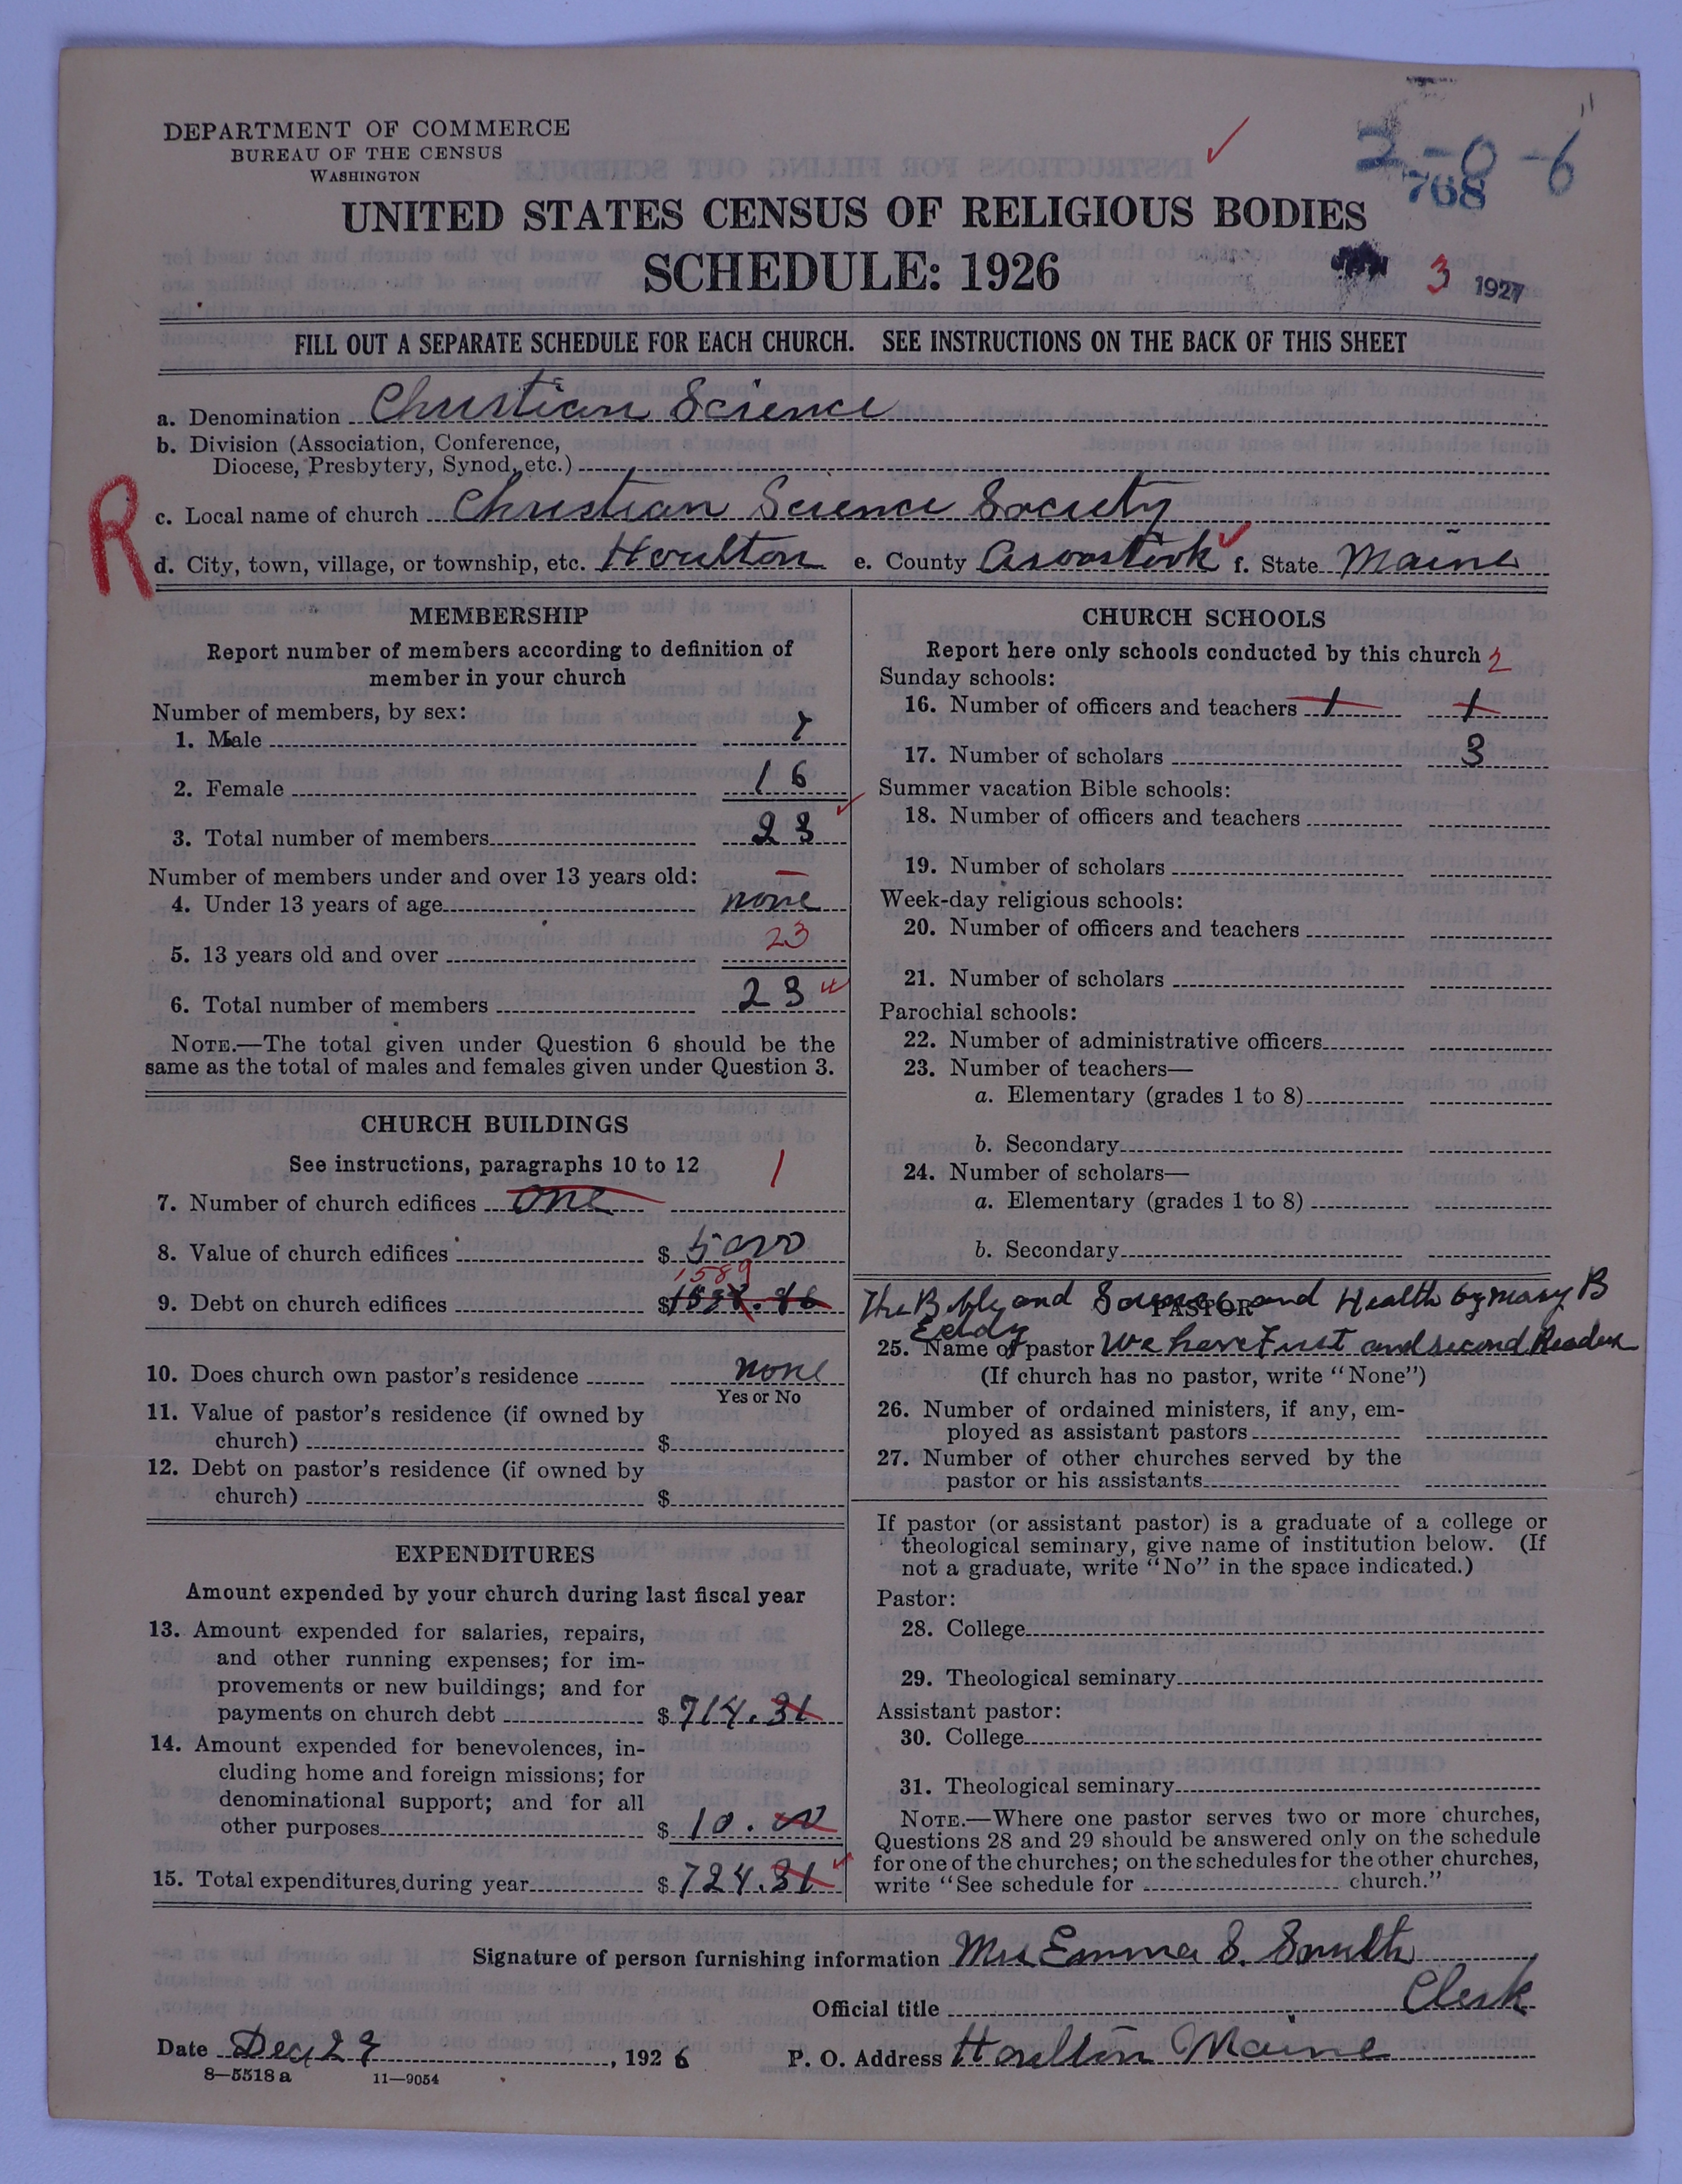 DEPARTMENT OF COMMERCE
BUREAU OF THE CENSUS
WASHINGTON
2-0-6
768
UNITED STATES CENSUS OF RELIGIOUS BODIES
SCHEDULE: 1926
3 1927
FILL OUT A SEPARATE SCHEDULE FOR EACH CHURCH. SEE INSTRUCTIONS ON THE BACK OF THIS SHEET
a. Denomination Christian Science
b. Division (Association, Conference,
Diocese, Presbytery, Synod, etc.)
R
c. Local name of church Christian Science Society
d. City, town, village, or township, etc. Houlton e. County Aroostook f. State Maine
MEMBERSHIP
Report number of members according to definition of
member in your church
Number of members, by sex:
1. Male 7
2. Female 16
3. Total number of members 23
Number of members under and over 13 years old:
4. Under 13 years of age none
5. 13 years old and over 23
6. Total number of members 23
NOTE.—The total given under Question 6 should be the
same as the total of males and females given under Question 3.
CHURCH BUILDINGS
See instructions, paragraphs 10 to 12
7. Number of church edifices one 1
8. Value of church edifices $ 5000
1589
9. Debt on church edifices $
10. Does church own pastor's residence none
Yes or No
11. Value of pastor's residence (if owned by
church) $
12. Debt on pastor's residence (if owned by
church) $
EXPENDITURES
Amount expended by your church during last fiscal year
13. Amount expended for salaries, repairs,
and other running expenses; for im-
provements or new buildings; and for
payments on church debt $ 714.31
14. Amount expended for benevolences, in-
cluding home and foreign missions; for
denominational support; and for all
other purposes $ 10.00
15. Total expenditures during year $ 724.31
CHURCH SCHOOLS
Report here only schools conducted by this church
2
Sunday schools:
16. Number of officers and teachers 1 1
17. Number of scholars 3
Summer vacation Bible schools:
18. Number of officers and teachers
19. Number of scholars
Week-day religious schools:
20. Number of officers and teachers
21. Number of scholars
Parochial schools:
22. Number of administrative officers
23. Number of teachers—
a. Elementary (grades 1 to 8)
b. Secondary
24. Number of scholars—
a. Elementary (grades 1 to 8)
b. Secondary
The Bible and Science and Health by Mary B
PASTOR
Eddy
25. Name of pastor We have First and second Readers
(If church has no pastor, write "None")
26. Number of ordained ministers, if any, em-
ployed as assistant pastors
27. Number of other churches served by the
pastor or his assistants
If pastor (or assistant pastor) is a graduate of a college or
theological seminary, give name of institution below. (If
not a graduate, write "No" in the space indicated.)
Pastor:
28. College
29. Theological seminary
Assistant pastor:
30. College
31. Theological seminary
NOTE.—Where one pastor serves two or more churches,
Questions 28 and 29 should be answered only on the schedule
for one of the churches; on the schedules for the other churches,
write "See schedule for church."
Signature of person furnishing information Mrs Emma S. Smith
Official title Clerk
Date Dec 29, 1926 P. O. Address Houlton Maine
8—5518 a 11—9054